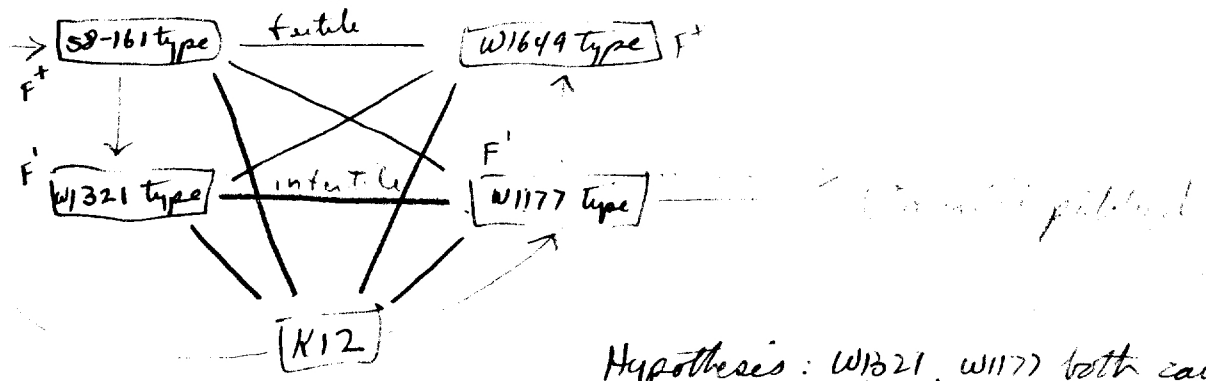 58-161 type fertile W1649 type F+
F+
F' F'
W1321 type infertile W1177 type
K12
Hypothesis: W1321, W1177 both